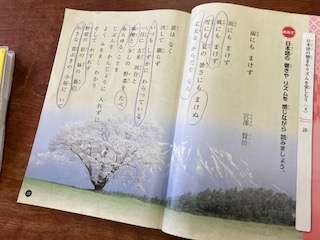 日本語の響きやリズムを楽しもう
詩
日本語の 響きや リズムを 感じながら 読みましょう。
雨にも まけず
宮澤 賢治
雨にも まけず
風にも まけず
雪にも 夏の 暑さにも まけぬ
丈夫な からだをもち
欲は なく
決して 瞋らず
いつも しずかに わらっている
一日に 玄米 四合と
味噌と 少しの 野菜を たべ
あらゆる ことを
じぶんを かんじょうに 入れずに
よく みききし わかり
そして わすれず
野原の 松の 林の 蔭の
小さな 萱ぶきの 小屋に い